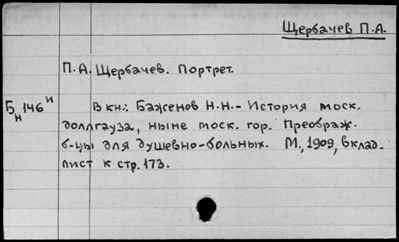 Щербачев П.А.
П.А. Щербачев. Портрет.
Бн 146и В кн.: Баженов Н.Н.- История моск.
доллгауза, ныне моск. гор. Преображ.
б-цы для душевно-больных. М., 1909, вклад.
лист к стр. 173.